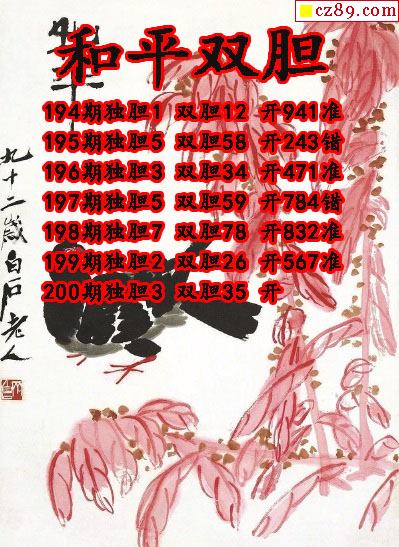 cz89.com
和平
和平双胆
194期独胆1 双胆12 开941准
195期独胆5 双胆58 开243错
196期独胆3 双胆34 开471准
197期独胆5 双胆59 开784错
198期独胆7 双胆78 开832准
199期独胆2 双胆26 开567准
200期独胆3 双胆35 开
九十二岁白石老人